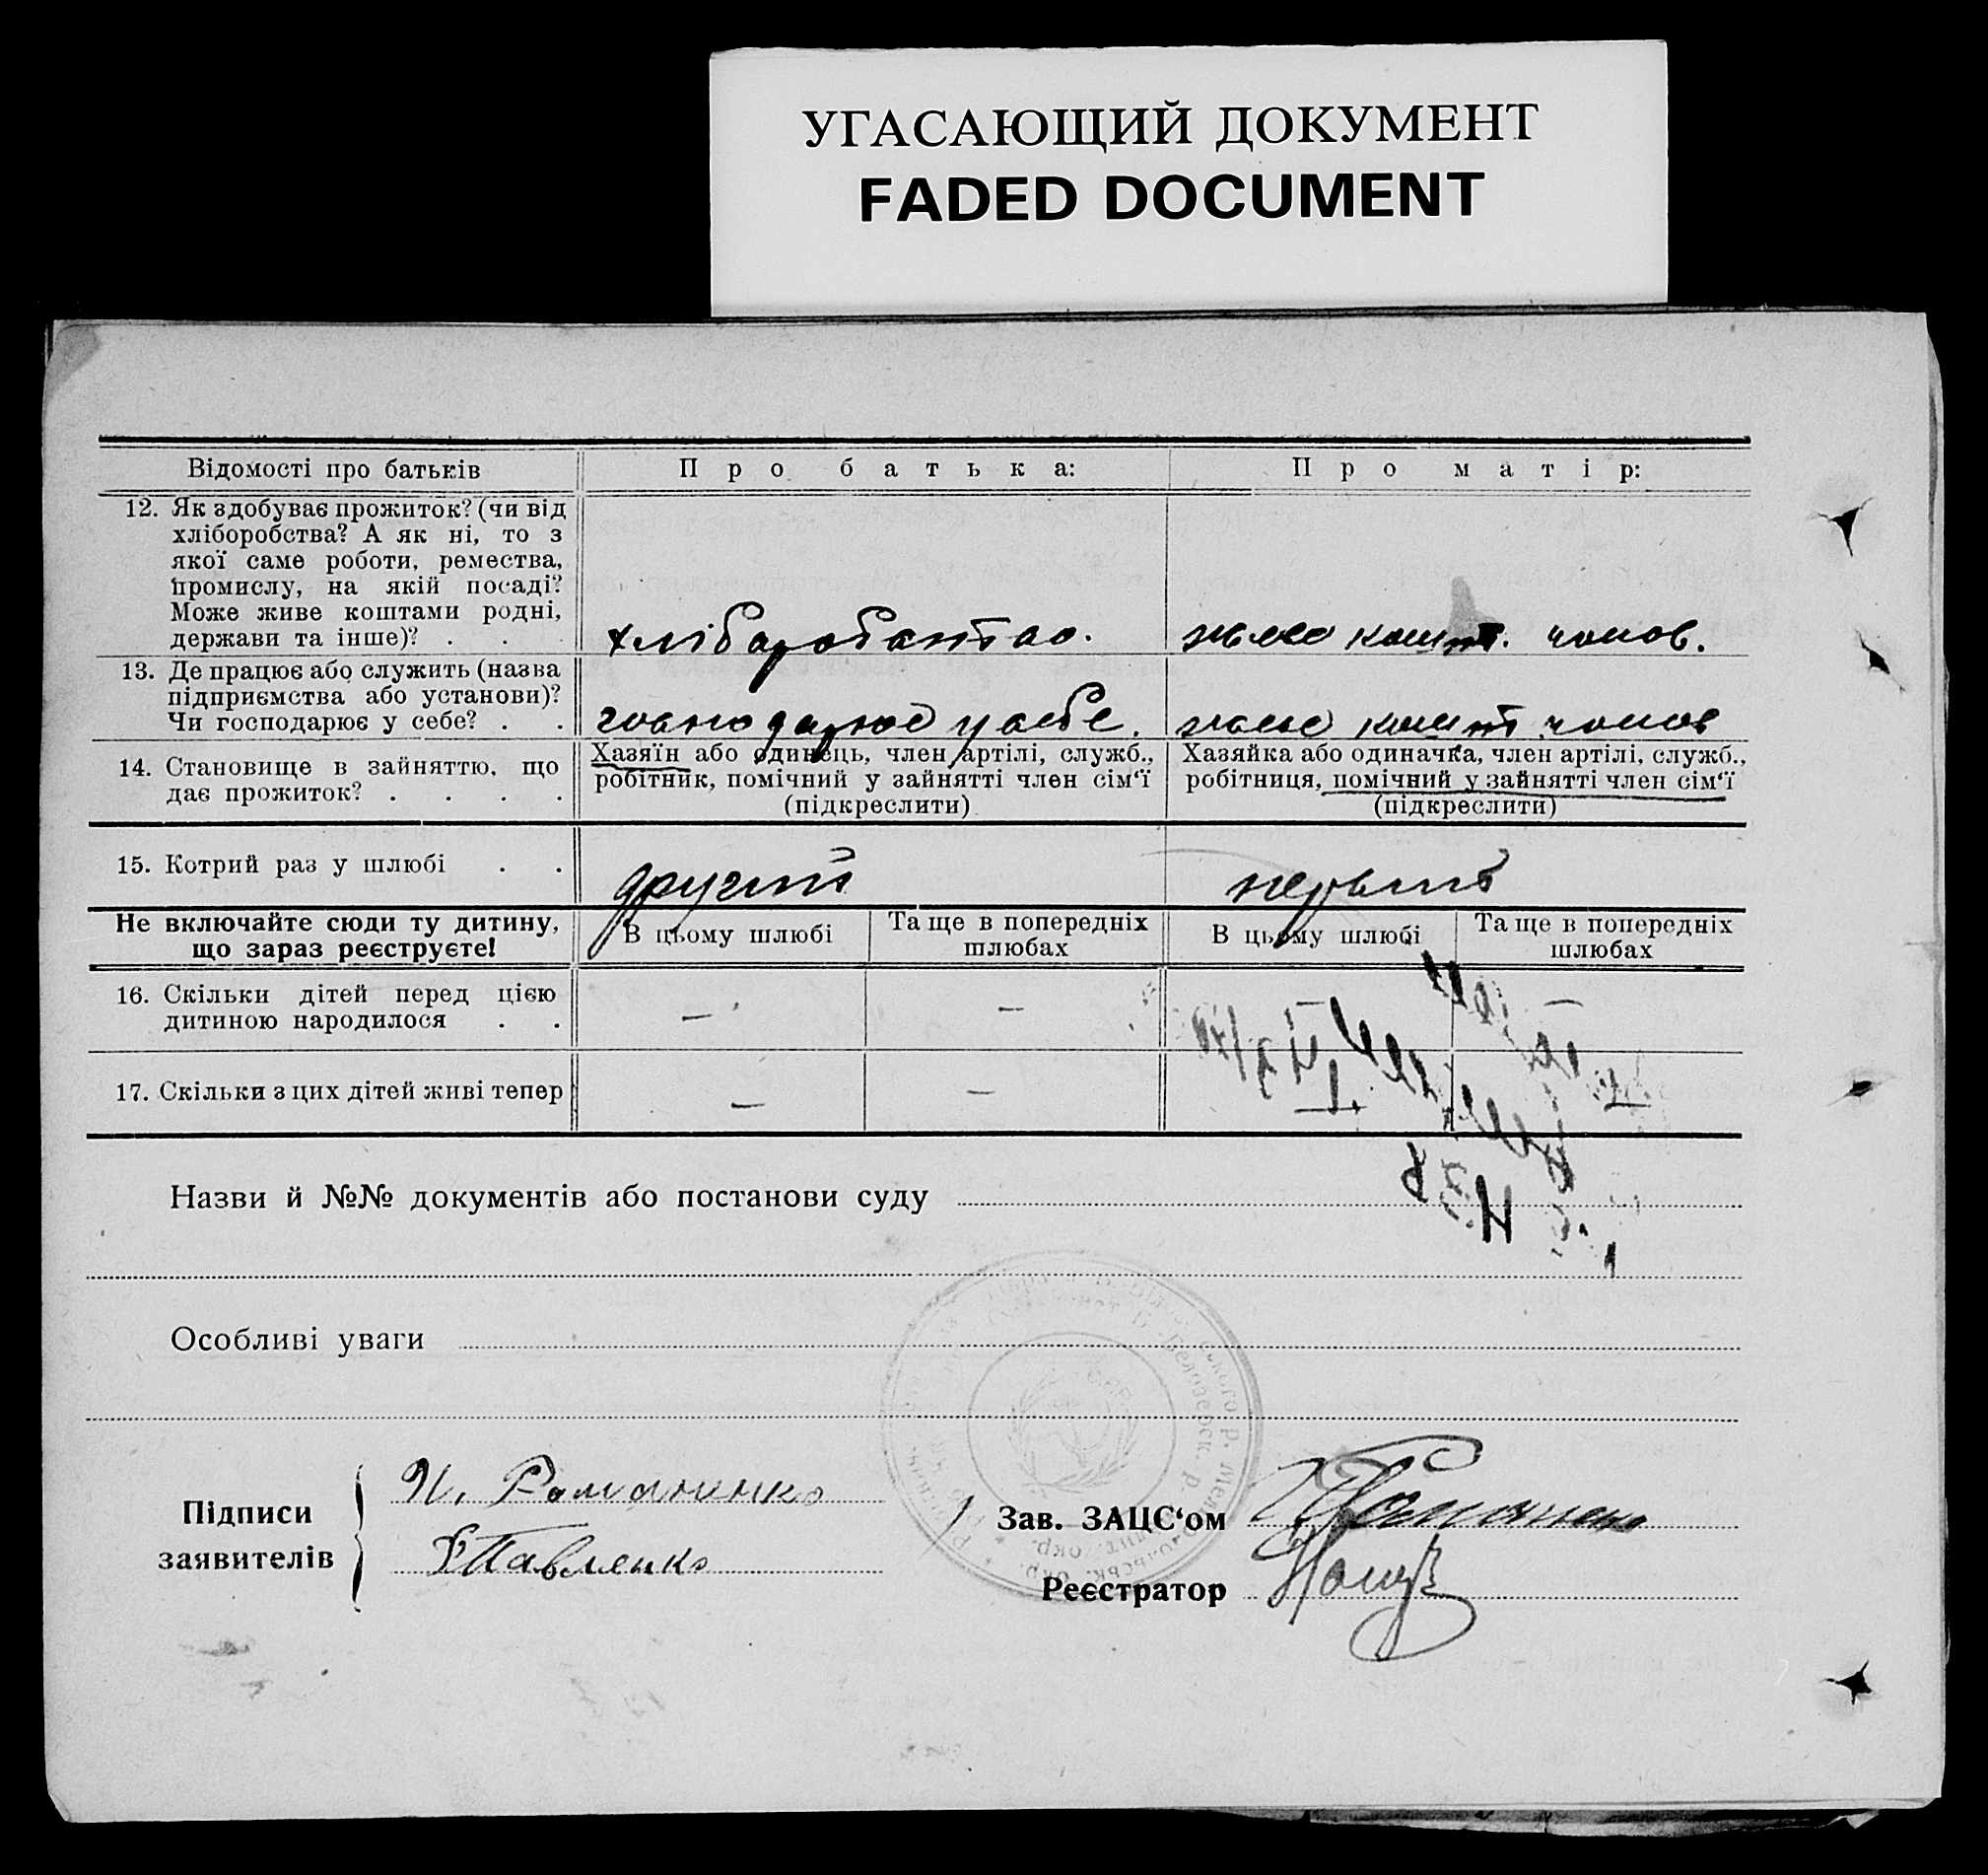 УГАСАЮЩИЙ ДОКУМЕНТ
FADED DOCUMENT
Відомості про батьків
Про батька:
Про матір:
12. Як здобуває прожиток? (чи від
хліборобства? А як ні, то з
якої саме роботи, ремества,
промислу, на якій посаді?
Може живе коштами родні,
держави та інше)? . .
живе кошт. чолов.
13. Де працює або служить (назва
підприємства або установи)?
Чи господарює у себе? . .
господарює у себе.
живе кошт чолов
14. Становище в зайняттю, що
дає прожиток? . . . .
Хазяїн або одинець, член артілі, служб.,
робітник, помічний у зайнятті член сім‘ї
(підкреслити)
Хазяйка або одиначка, член артілі, служб.,
робітниця, помічний у зайнятті член сім‘ї
(підкреслити)
15. Котрий раз у шлюбі . .
другий
первий
Не включайте сюди ту дитину,
що зараз реєструєте!
В цьому шлюбі
Та ще в попередніх
шлюбах
В цьому шлюбі
Та ще в попередніх
шлюбах
16. Скільки дітей перед цією
дитиною народилося . .
—
—
—
—
17. Скільки з цих дітей живі тепер
—
—
—
—
Назви й №№ документів або постанови суду
Особливі уваги
Підписи
заявителів
И. Романенко
Павленко
Зав. ЗАЦС‘ом
Реєстратор